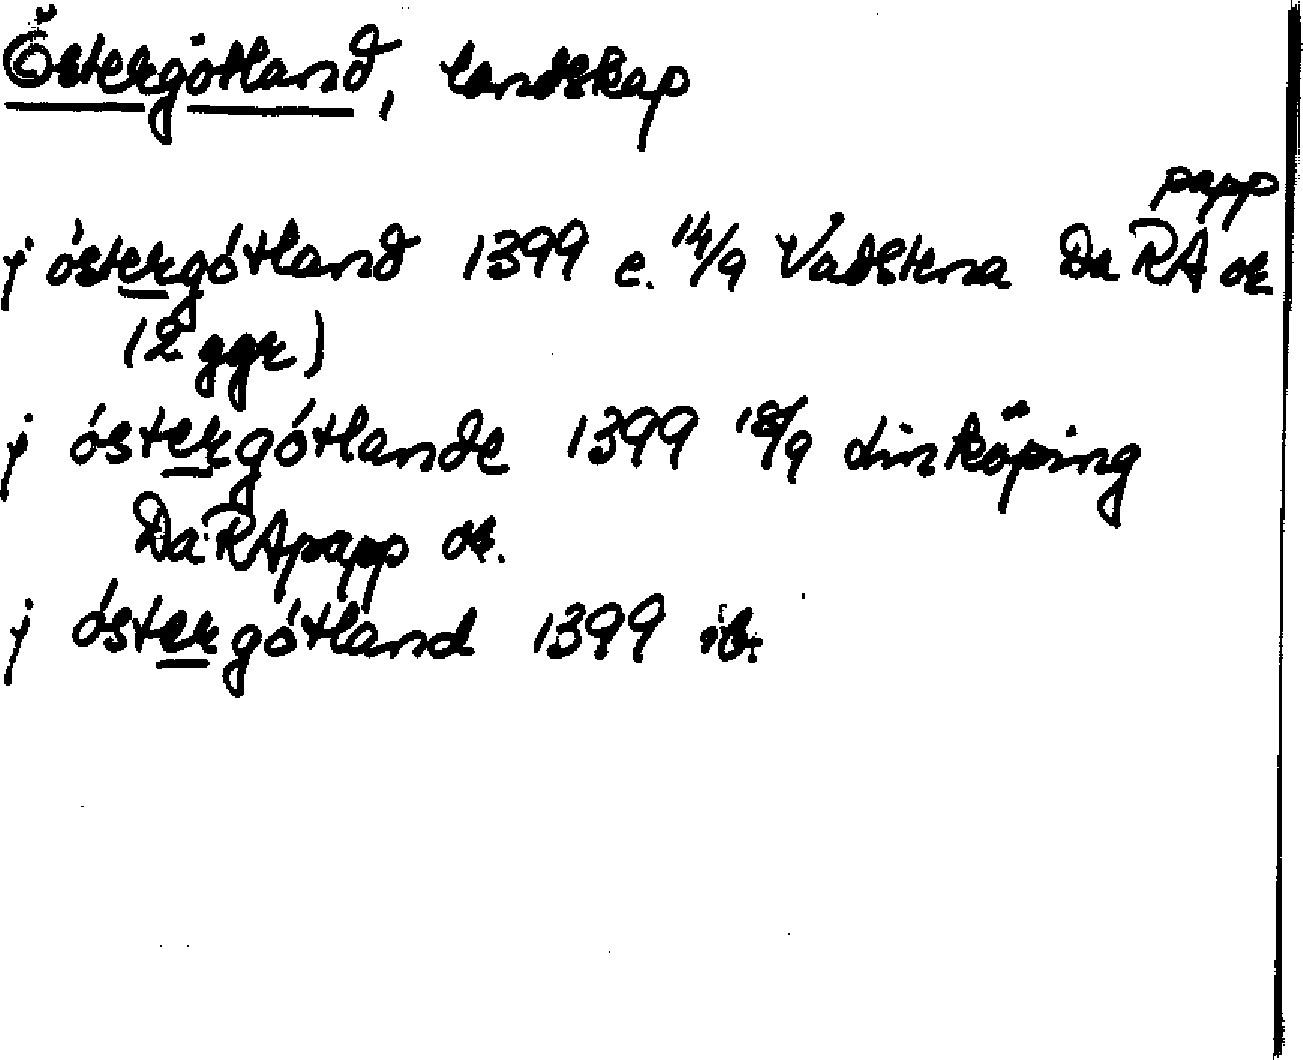 Östergötland, landskap
papp
j óstergótland 1399 e. 14/9 Vadstena Da RA or
(2 ggr)
j óstergótlande 1399 18/9 Linköping
Da RA papp or.
j óstergótland 1399 ib.